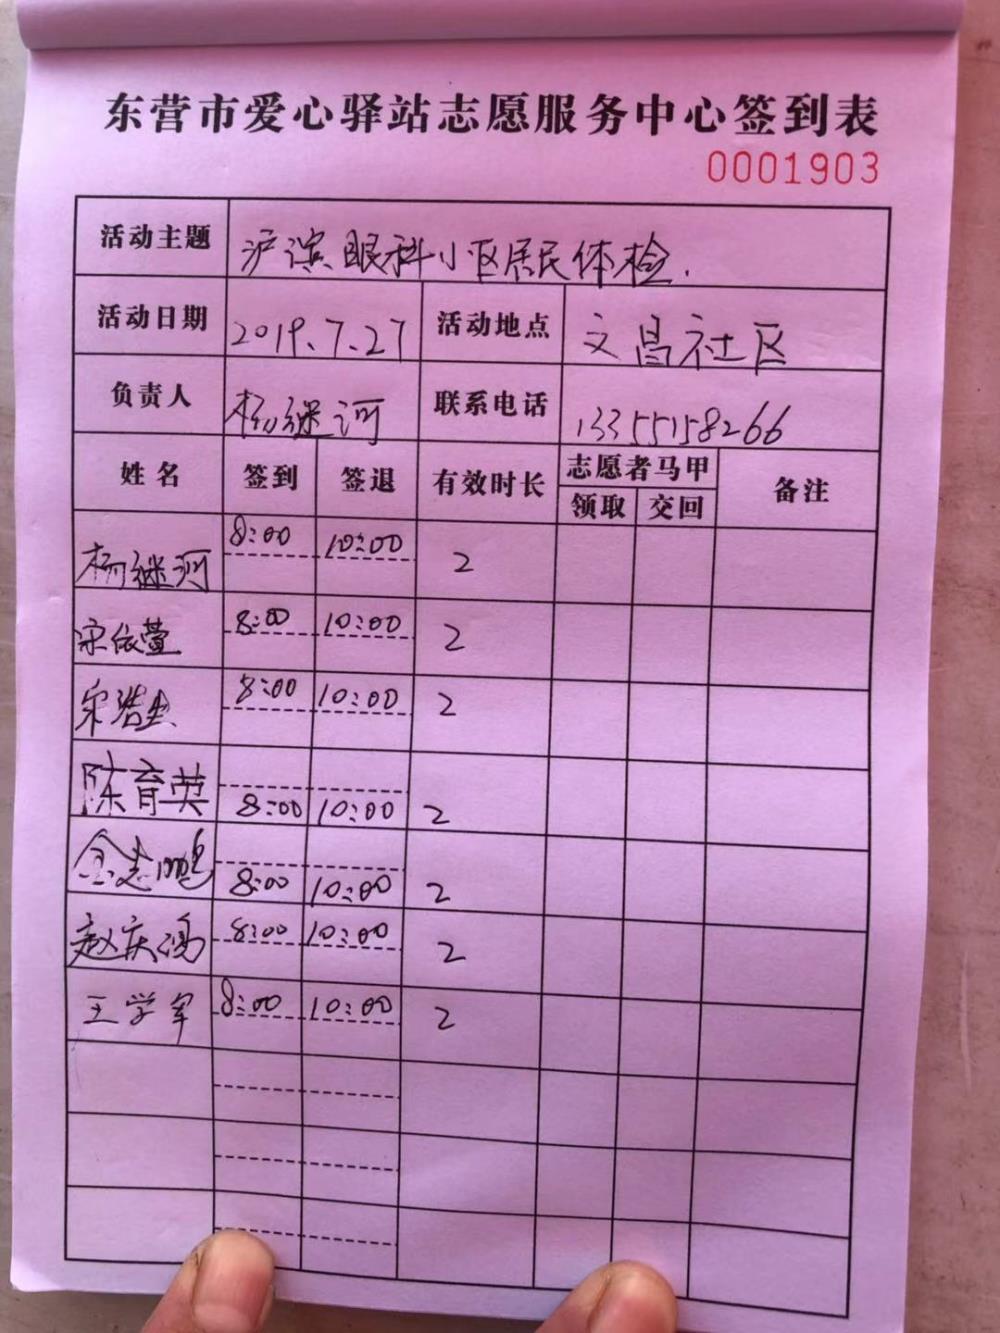 东营市爱心驿站志愿服务中心签到表
0001903
活动主题 沪滨眼科小区居民体检.
活动日期 2019.7.27 活动地点 文昌社区
负责人 杨继河 联系电话 13355158266
姓名 签到 签退 有效时长 志愿者马甲 备注
领取 交回
杨继河 8:00 10:00 2
宋依萱 8:00 10:00 2
宋浩 8:00 10:00 2
陈育英 8:00 10:00 2
志鹏 8:00 10:00 2
赵庆鸿 8:00 10:00 2
王学军 8:00 10:00 2